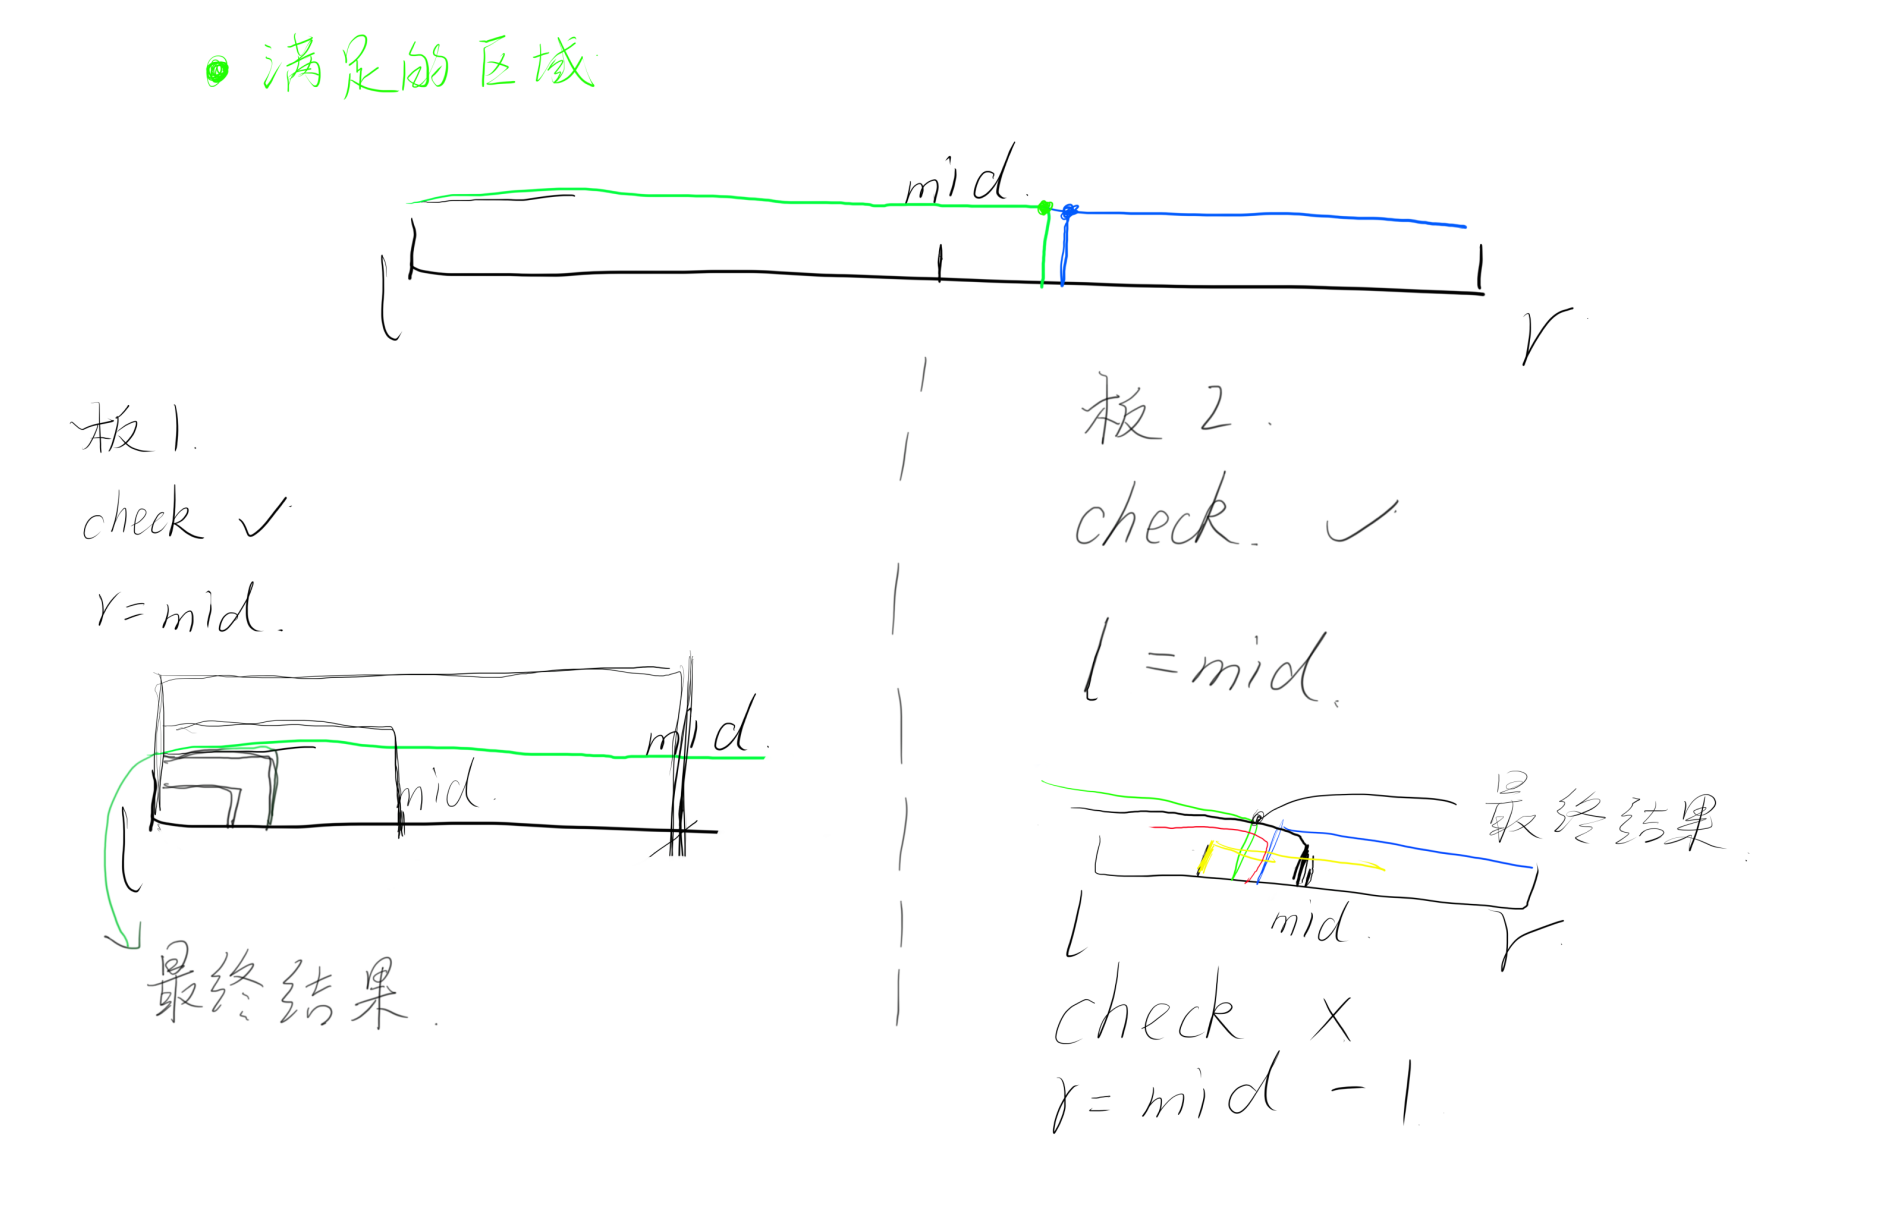 满足的区域
mid.
l
r
板1.
check ✓
r=mid.
mid.
mid.
l
最终结果.
板2.
check. ✓
l=mid.
最终结果.
l
mid.
r
check ×
r=mid-1